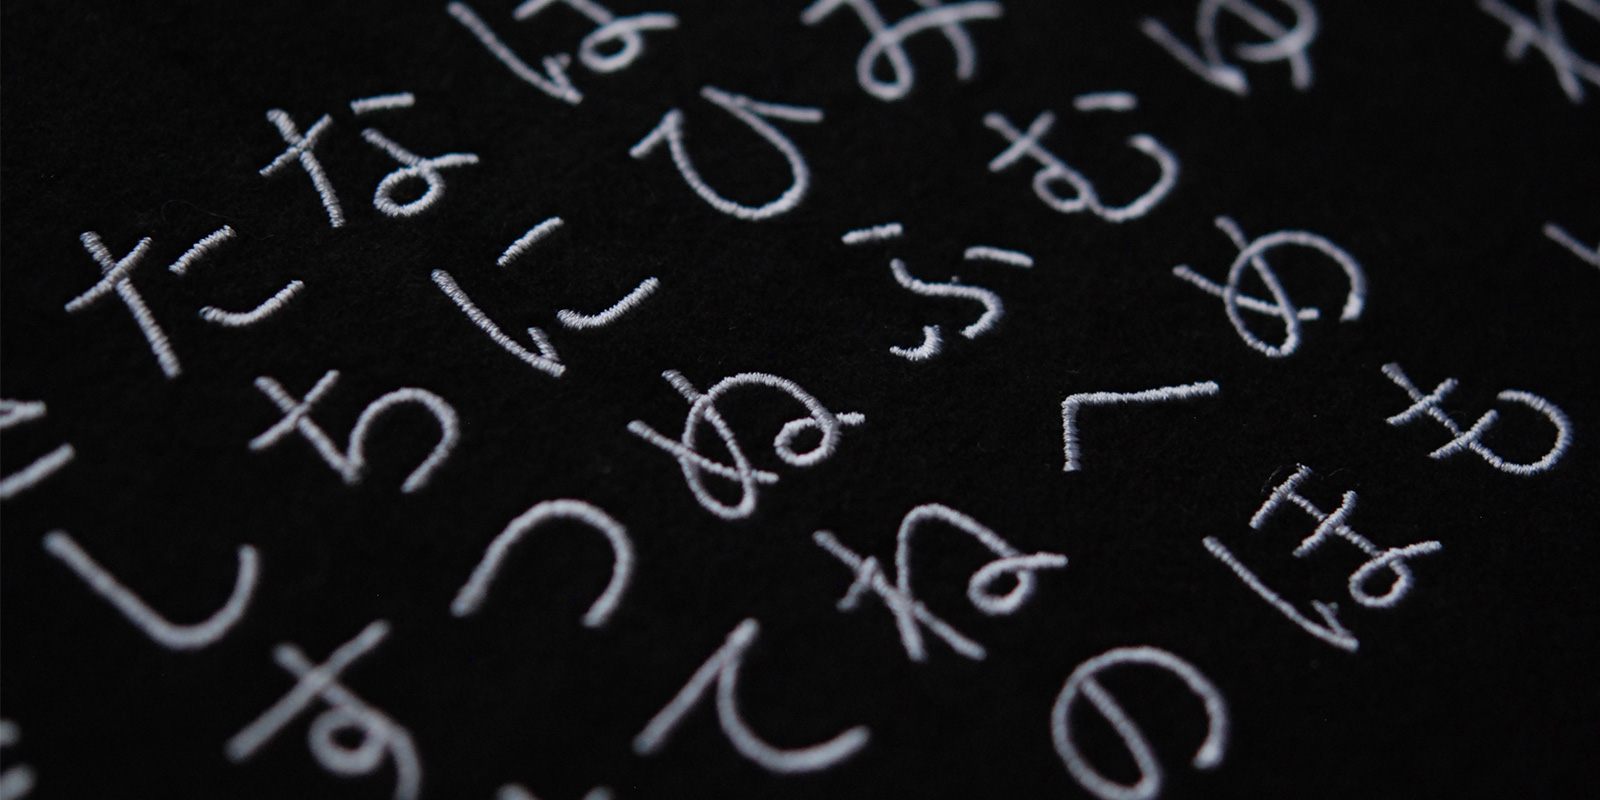 しす
たちつて
なにぬねの
はひふへほ
みむめも
ゆ